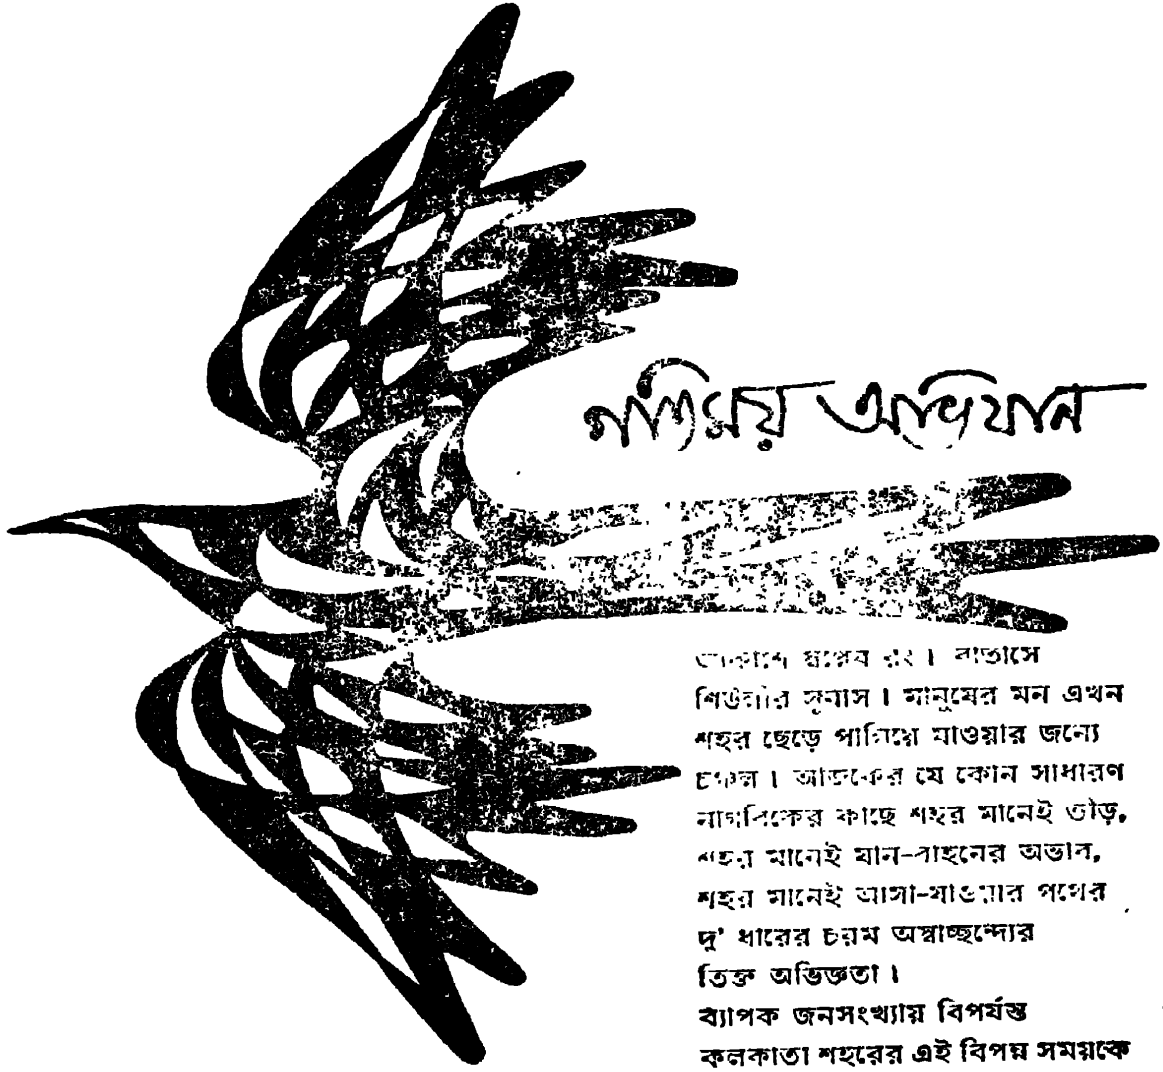 গতিময় অভিযান
আকাশে স্বপ্নের রং। বাতাসে
শিউলীর সুবাস। মানুষের মন এখন
শহর ছেড়ে পালিয়ে যাওয়ার জন্যে
চঞ্চল। আজকের যে কোন সাধারণ
নাগরিকের কাছে শহর মানেই ভীড়,
শহর মানেই যান-বাহনের অভাব,
শহর মানেই আসা-যাওয়ার পথের
দু' ধারের চরম অস্বাচ্ছন্দ্যের
তিক্ত অভিজ্ঞতা।
ব্যাপক জনসংখ্যায় বিপর্যস্ত
কলকাতা শহরের এই বিপন্ন সময়কে